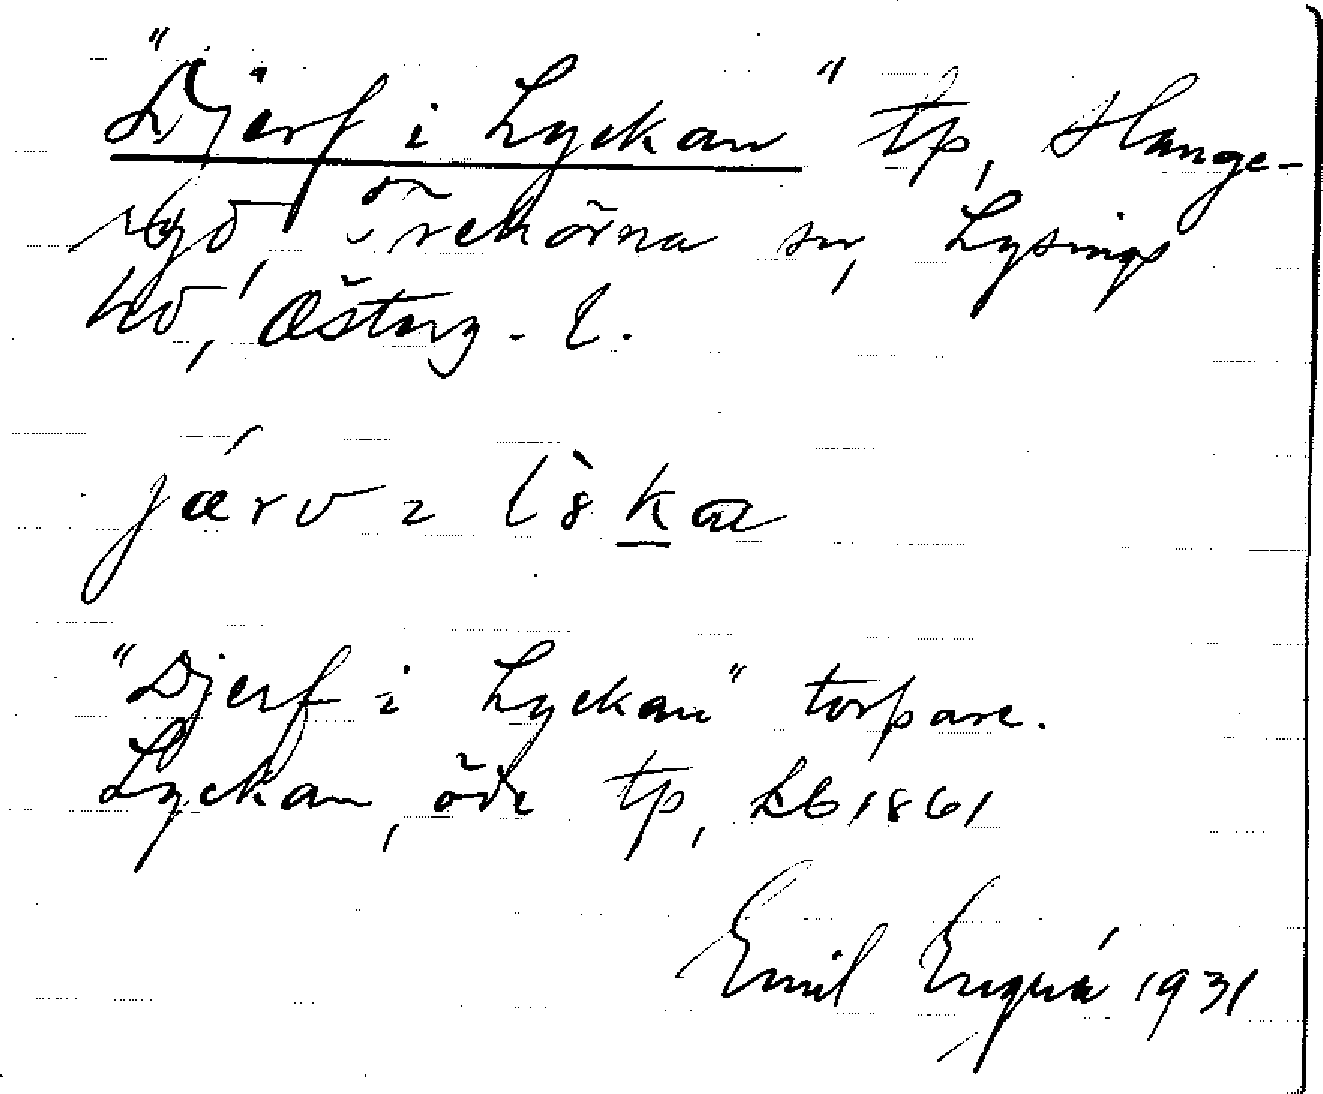 "Djerf i Lyckan" tp, Hange-
ryd, Trehörna sn, Lysings
hd, Österg. l.
járv i l&#x00F2;ka
"Djerf i Lyckan" torpare.
Lyckan, öde tp, Lb 1861
Emil Enquá 1931